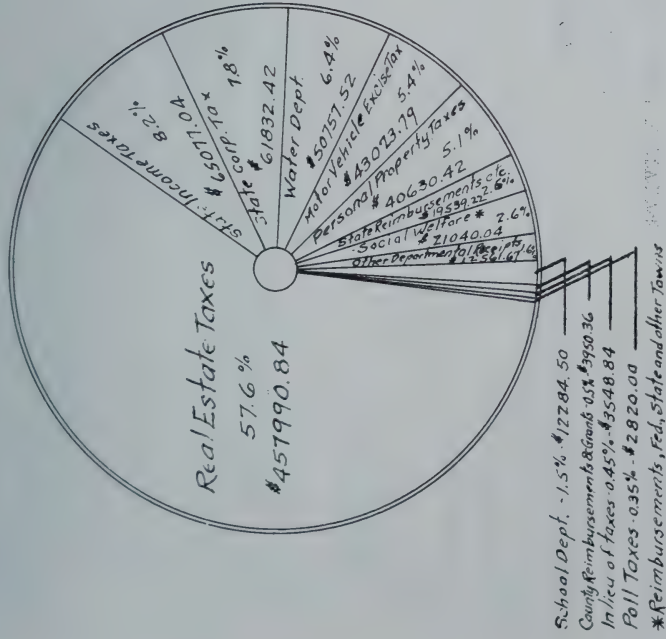 Real Estate Taxes
57.6%
$457990.84
State Income Taxes
8.2%
$65077.04
State Corp. Tax
7.8%
$61832.42
Water Dept.
6.4%
$50757.52
Motor Vehicle Excise Tax
5.4%
$43023.79
Personal Property Taxes
5.1%
$40630.42
State Reimbursements etc.
$19539.22
Social Welfare *
2.6%
$21040.04
Other Departmental Receipts
1.6%
School Dept. - 1.5% - $12284.50
County Reimbursements & Grants - 0.5% - $3950.36
In lieu of taxes - 0.45% - $3548.84
Poll Taxes - 0.35% - $2820.00
*Reimbursements, Fed, State and other Towns